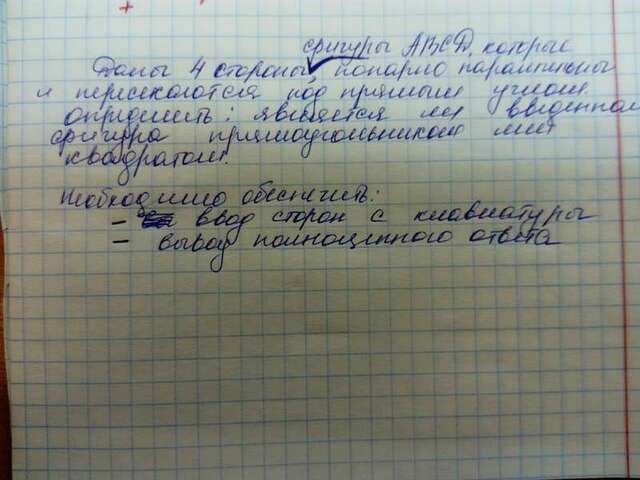 фигуры ABCD, которые
Даны 4 стороны, попарно параллельны
и пересекаются под прямым углом.
определить: является ли введенная
фигура прямоугольником или
квадратом.
Необходимо обеспечить:
- ввод сторон с клавиатуры
- вывод полноценного ответа